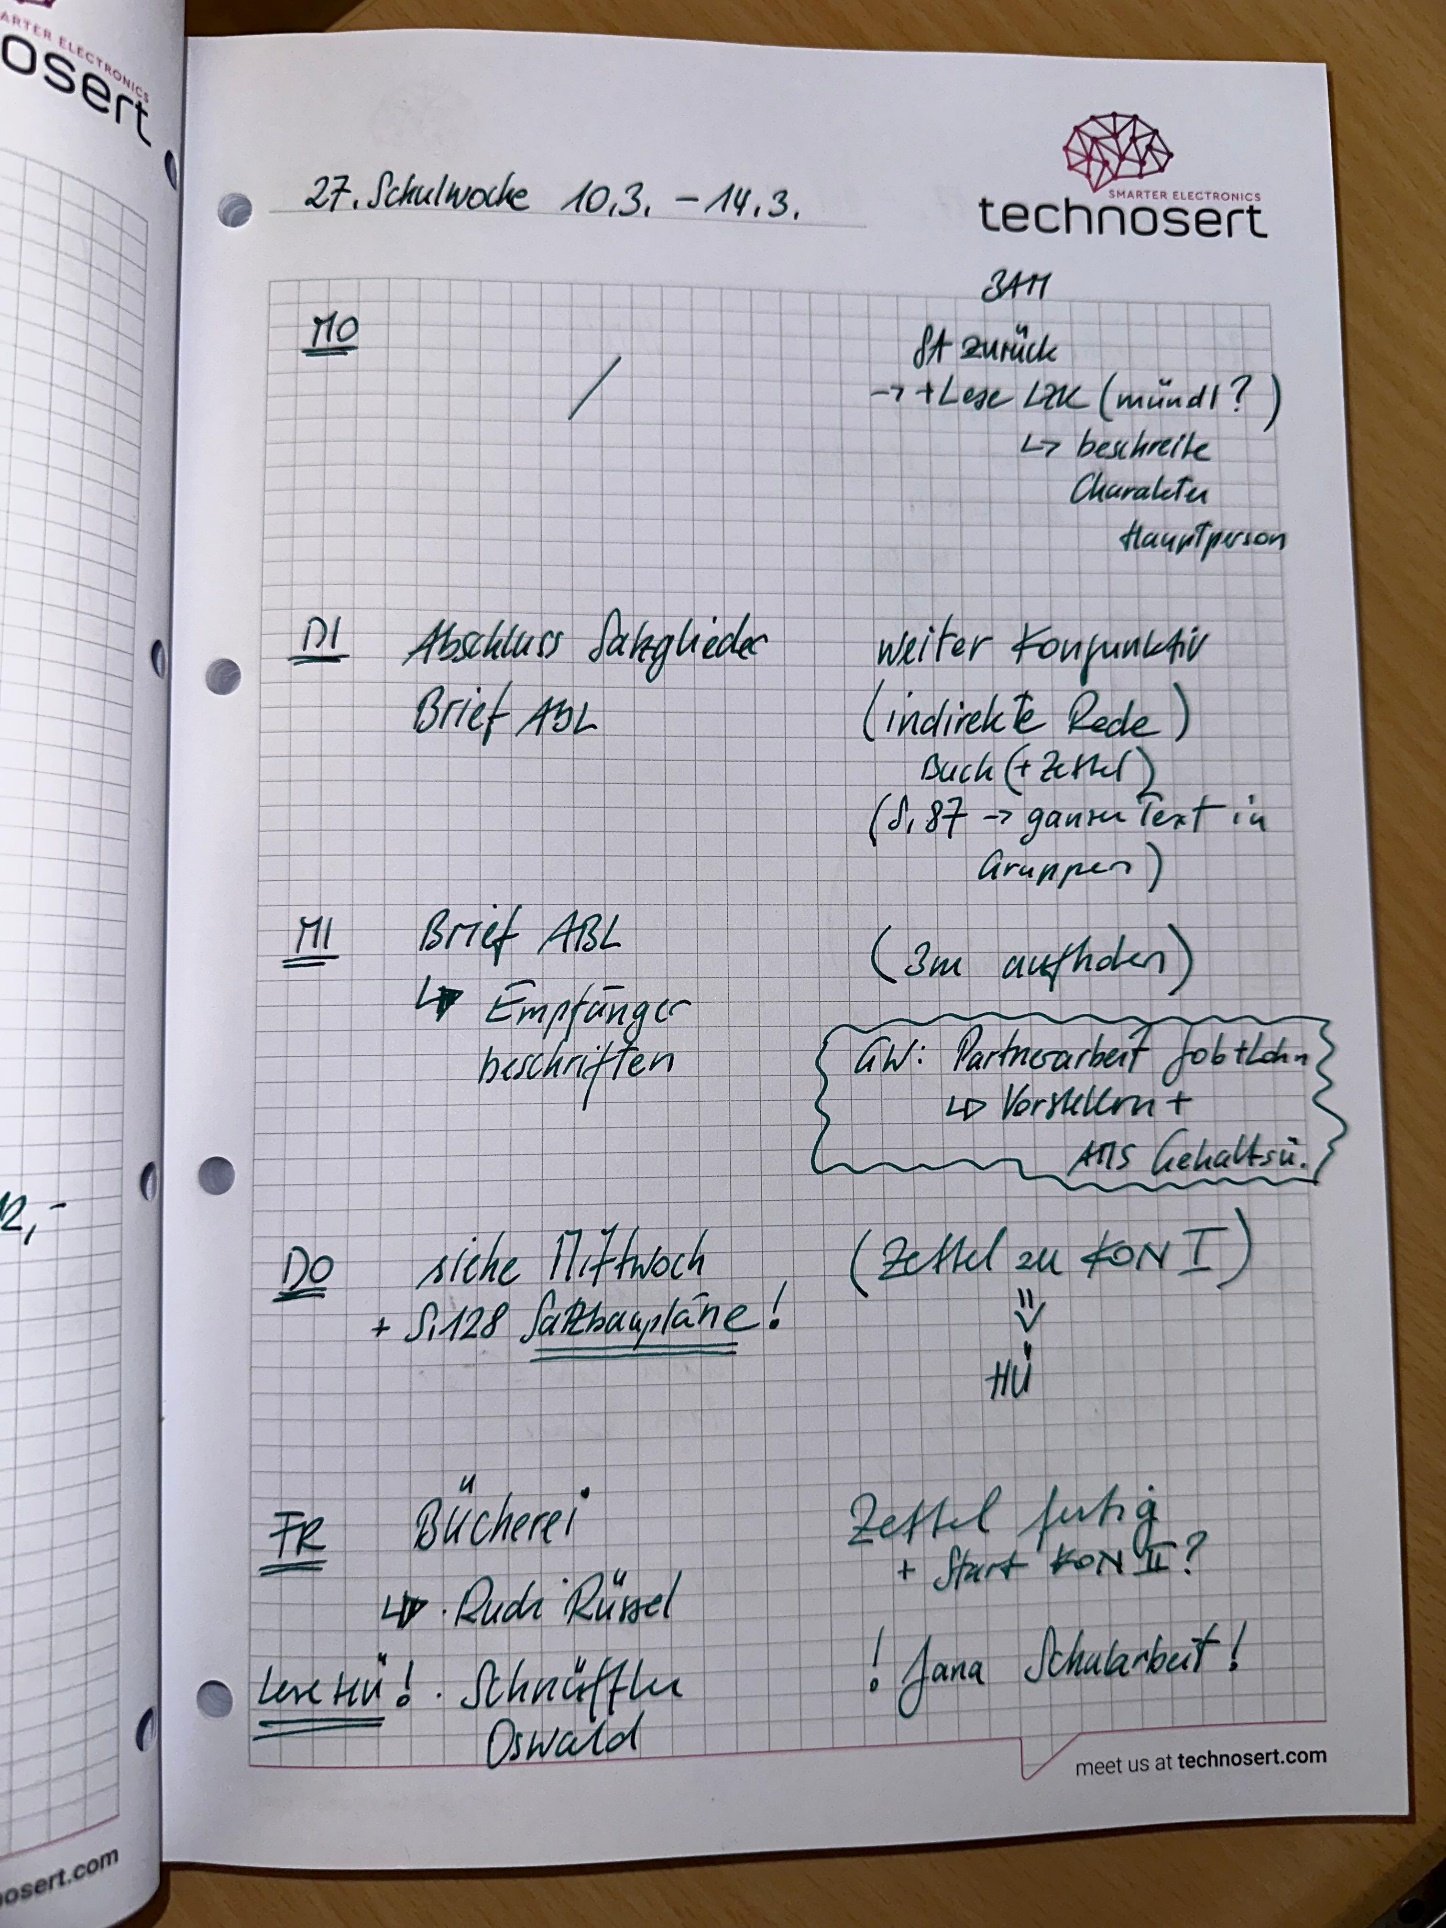 ARTER ELECTRONICS
osert
12,-
nosert.com
SMARTER ELECTRONICS
technosert
27. Schulwoche 10.3. - 14.3.
3AM
MO
/
SA zurück
→ + Lese LZK (mündl?)
↳ beschreibe
Charakter
Hauptperson
DI
Abschluss Satzglieder
Brief ABL
weiter Konjunktiv
(indirekte Rede)
Buch (+ Zettel)
(S. 87 → ganzen Text in
Gruppen)
MI
Brief ABL
↳ Empfänger
beschriften
(3m aufholen)
GW: Partnerarbeit Job + Lohn
↳ Vorstellen +
AMS Gehaltsü.
DO
siehe Mittwoch
+ S. 128 Satzbaupläne!
(Zettel zu KON I)
⇓
HÜ
FR
Bücherei
↳ · Rudi Rüssel
Lese HÜ! · Schnüffler
Oswald
Zettel fertig
+ Start KON II?
! Jana Schularbeit!
meet us at technosert.com